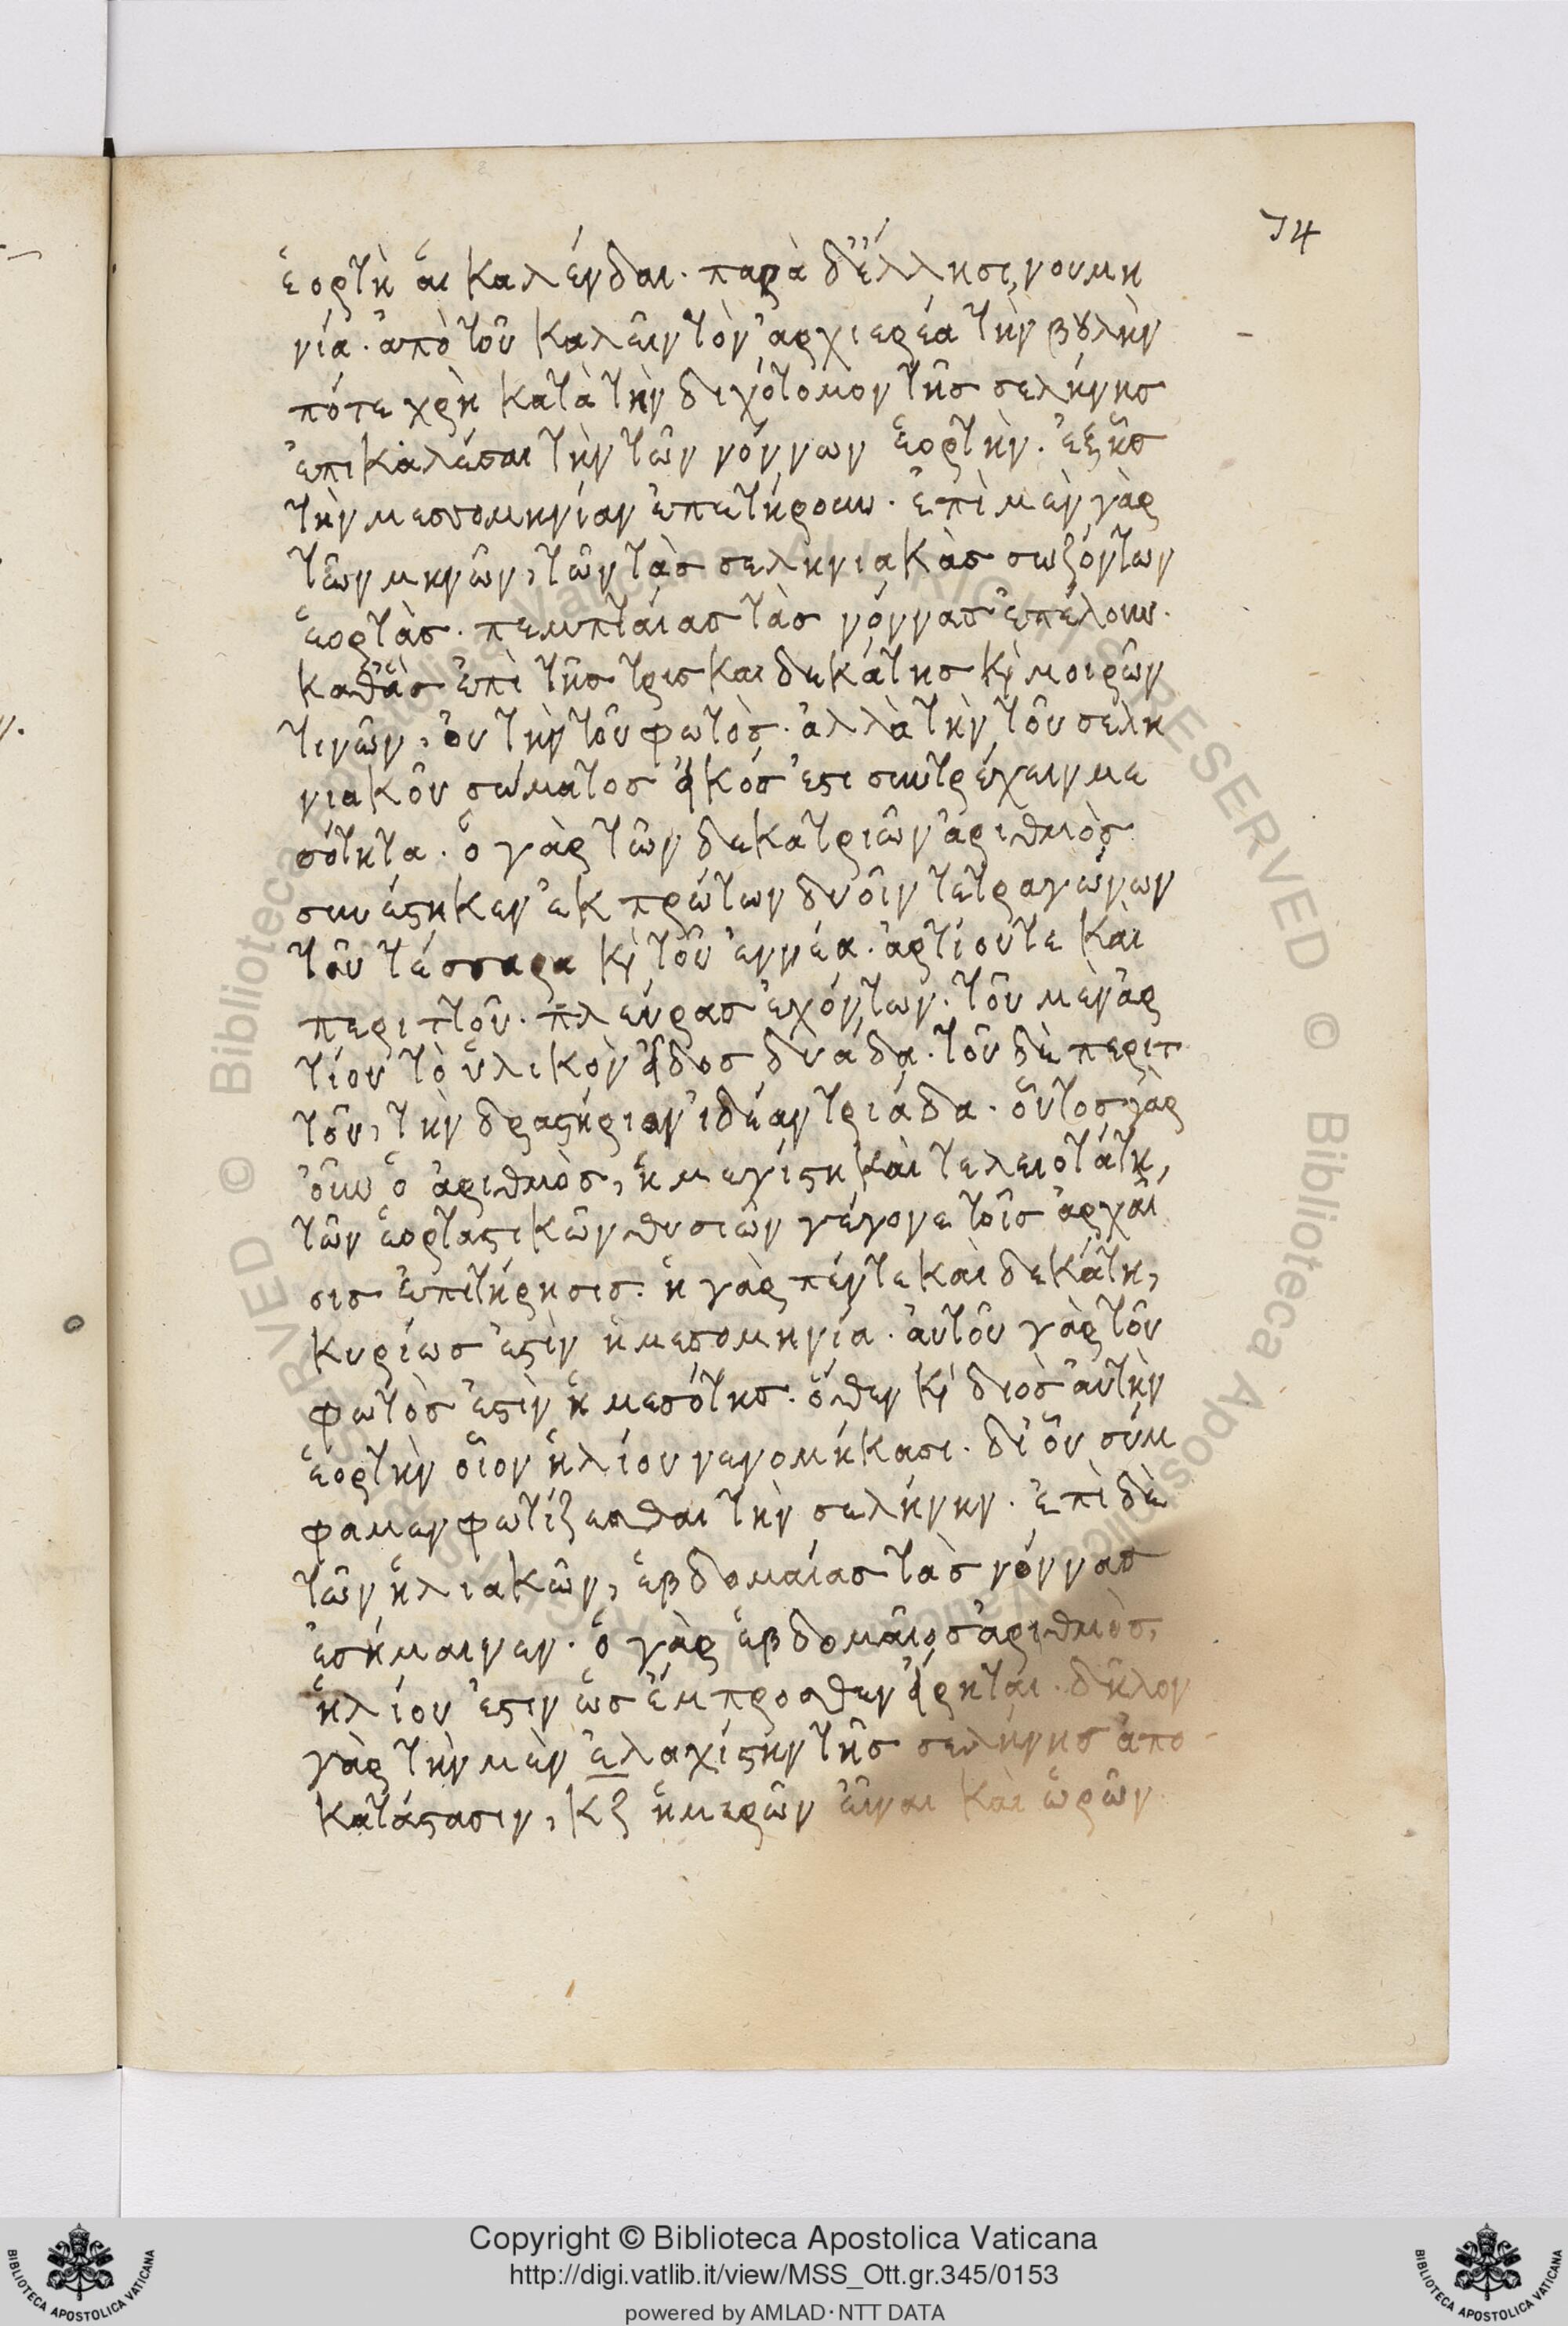 74
ἑορτὴ ἁι καλένδαι. παρὰ δ' ἕλλησι, νουμη
νία. ἀπὸ τοῦ καλεῖν τὸν ἀρχιερέα τὴν βουλὴν
πότε χρὴ κατὰ τὴν διχότομον τῆς σελήνης
ἐπικαλέσαι τὴν τῶν νόννων ἑορτὴν. ἑξῆς
τὴν μεσσομηνίαν ἐπετήρουν. ἐπὶ μὲν γὰρ
τῶν μηνῶν, τῶν τὰς σεληνιακὰς σωζόντων
ἑορτὰς. πεμπταίας τὰς νόννας ἐπέλουν.
καθὰς ἐπὶ τῆς τρισκαιδεκάτης κὶ μοιρῶν
τινῶν, οὐ τὴν τοῦ φωτὸς. ἀλλὰ τὴν τοῦ σελη
νιακοῦ σώματος εἰκός ἐστι συντρέχειν με
σότητα. ὁ γὰρ τῶν δεκατριῶν ἀριθμὸς
συνέστηκεν ἐκ πρώτων δυοῖν τετραγώνων
τοῦ τέσσαρα κὶ τοῦ ἐννέα. ἀρτίου τε καὶ
περιττοῦ. πλεύρας ἐχόντων. τοῦ μὲν ἀρ
τίου τὸ ὑλικὸν εἶδος δυάδα. τοῦ δὲ περιτ
τοῦ, τὴν δραστήριον ἰδέαν τριάδα. οὗτος γὰρ
οὖν ὁ ἀριθμὸς, ἡ μεγίστη καὶ τελειοτάτη,
τῶν ἑορταστικῶν θυσιῶν γέγονε τοῖς ἀρχαί
οις ἐπιτήρησις. ἡ γὰρ πέντε καὶ δεκάτη,
κυρίως ἐστὶν ἡ μεσομηνία. αὐτοῦ γὰρ τοῦ
φωτὸς ἐστὶν ἡ μεσότης. ὅθεν κὶ διὸς αὐτὴν
ἑορτὴν οἷον ἡλίου νενομήκασι. δι' οὗ σύμ
φαμεν φωτίζεσθαι τὴν σελήνην. ἐπὶ δὲ
τῶν ἡλιακῶν, ἑβδομαίας τὰς νόννας
ἐσήμαινεν. ὁ γὰρ ἑβδομαῖος ἀριθμὸς,
ἡλίου ἐστιν ὡς ἔμπροσθεν εἴρηται. δῆλον
γὰρ τὴν μὲν ἐλαχίστην τῆς σελήνης ἀπο
κατάστασιν, κζ ἡμερῶν εἶναι καὶ ὡρῶν
Copyright © Biblioteca Apostolica Vaticana
http://digi.vatlib.it/view/MSS_Ott.gr.345/0153
powered by AMLAD·NTT DATA